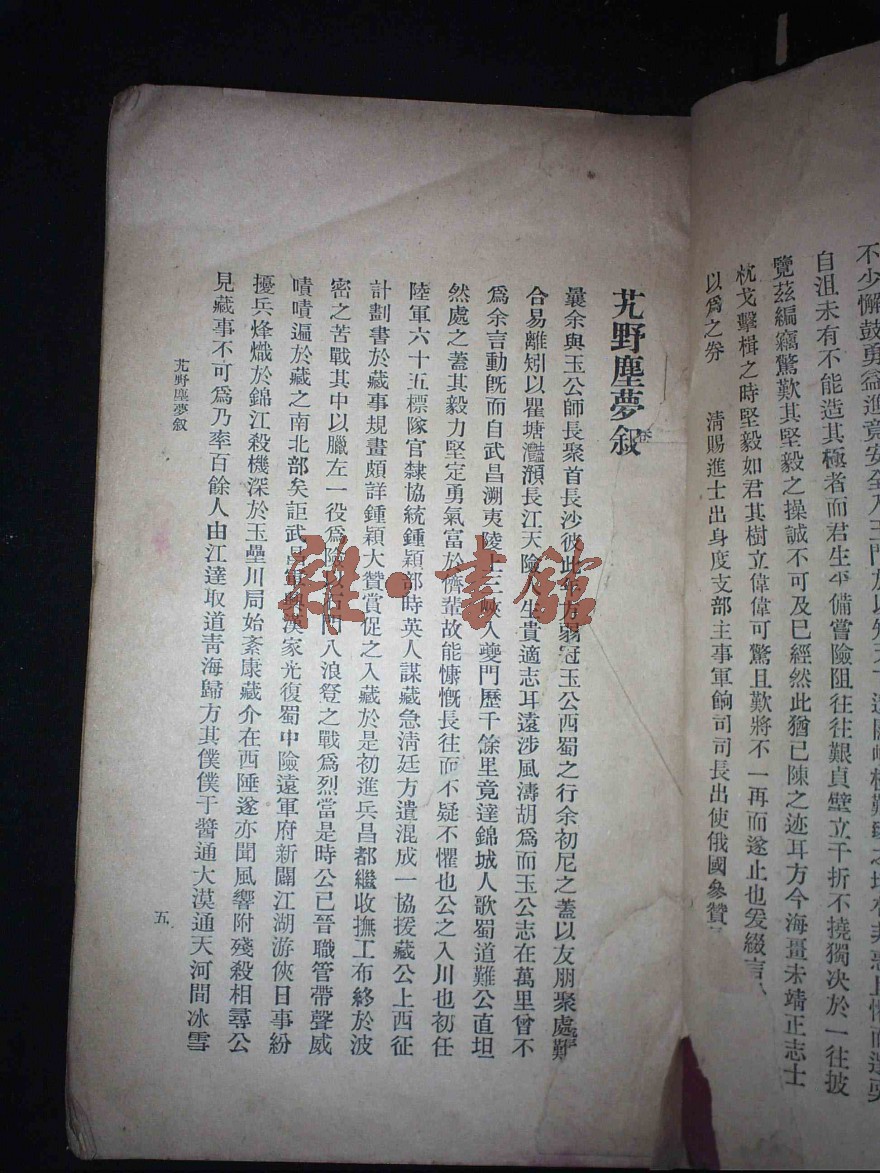 不少懈鼓勇益進竟安全入玉門於以知天下遼闊
自沮未有不能造其極者而君生平備嘗險阻往往艱貞壁立千折不撓獨決於一往披
覽茲編竊驚歎其堅毅之操誠不可及巳經然此猶已陳之迹耳方今海畺未靖正志士
枕戈擊楫之時堅毅如君其樹立偉偉可驚且歎將不一再而遂止也爰綴言
以爲之券　清賜進士出身度支部主事軍餉司司長出使俄國參贊
艽野塵夢叙
曩余與玉公師長聚首長沙彼此年方弱冠玉公西蜀之行余初尼之蓋以友朋聚處難
合易離矧以瞿塘灩澦長江天險人生貴適志耳遠涉風濤胡爲而玉公志在萬里曾不
爲余言動旣而自武昌溯夷陵上三峽入夔門歷千餘里竟達錦城人歌蜀道難公直坦
然處之蓋其毅力堅定勇氣富於儕輩故能慷慨長往而不疑不懼也公之入川也初任
陸軍六十五標隊官隸協統鍾穎部時英人謀藏急淸廷方遣混成一協援藏公上西征
計劃書於藏事規畫頗詳鍾穎大贊賞促之入藏於是初進兵昌都繼收撫工布終於波
密之苦戰其中以臘左一役爲險以石門八浪登之戰爲烈當是時公已晉職管帶聲威
嘖嘖遍於藏之南北部矣詎武昌軍興漢家光復蜀中險遠軍府新闢江湖游俠日事紛
擾兵烽熾於錦江殺機深於玉壘川局始紊康藏介在西陲遂亦聞風響附殘殺相尋公
見藏事不可爲乃率百餘人由江達取道靑海歸方其僕僕于醬通大漠通天河間冰雪
艽野塵夢叙
五
雜·書館